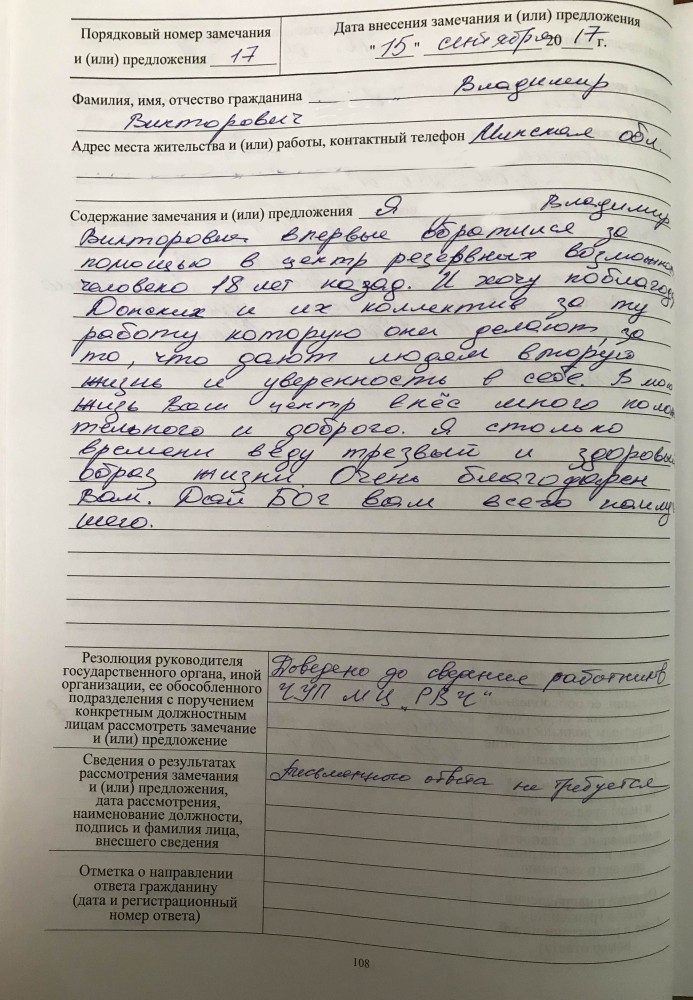 Порядковый номер замечания
и (или) предложения 17
Дата внесения замечания и (или) предложения
"15" сентября 2017 г.
Фамилия, имя, отчество гражданина Владимир
Викторович
Адрес места жительства и (или) работы, контактный телефон Минская обл.
Содержание замечания и (или) предложения Я Владимир
Викторович впервые обратился за
помощью в центр резервных возможн
человека 18 лет назад. И хочу поблагод
Донских и их коллектив за ту
работу которую они делают, за
то, что дают людям вторую
жизнь и уверенность в себе. В мою
жизь Ваш центр внёс много полож
тельного и доброго. Я столько
времени веду трезвый и здоровый
образ жизни. Очень благодарен
Вам. Дай Бог вам всего наилу
шего.
Резолюция руководителя
государственного органа, иной
организации, ее обособленного
подразделения с поручением
конкретным должностным
лицам рассмотреть замечание
и (или) предложение
Доведено до сведения работников
ЧУП МЦ "РВЧ"
Сведения о результатах
рассмотрения замечания
и (или) предложения,
дата рассмотрения,
наименование должности,
подпись и фамилия лица,
внесшего сведения
Письменного ответа не требуется
Отметка о направлении
ответа гражданину
(дата и регистрационный
номер ответа)
108